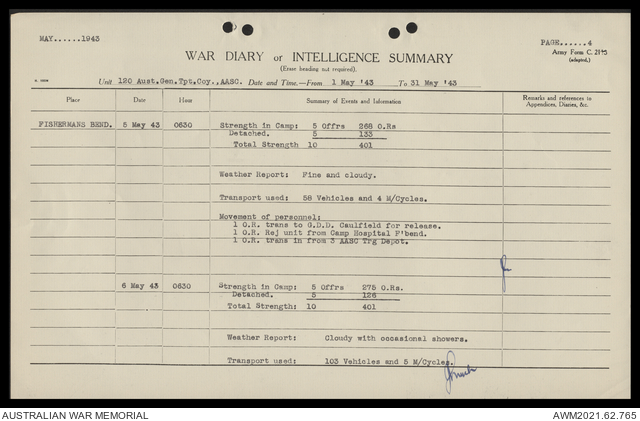 MAY......1943
PAGE......4
Army Form C. 2118
(adapted.)
WAR DIARY or INTELLIGENCE SUMMARY
(Erase heading not required).
Unit 120 Aust.Gen.Tpt.Coy.,AASC. Date and Time.—From 1 May '43 To 31 May '43
Place Date Hour Summary of Events and Information Remarks and references to Appendices, Diaries, &c.
FISHERMANS BEND. 5 May 43 0630 Strength in Camp: 5 Offrs 268 O.Rs
Detached. 5 133
Total Strength 10 401
Weather Report: Fine and cloudy.
Transport used: 58 Vehicles and 4 M/Cycles.
Movement of personnel:
1 O.R. trans to G.D.D. Caulfield for release.
1 O.R. Rej unit from Camp Hospital F'bend.
1 O.R. trans in from 3 AASC Trg Depot.
6 May 43 0630 Strength in Camp: 5 Offrs 275 O.Rs.
Detached. 5 126
Total Strength: 10 401
Weather Report: Cloudy with occasional showers.
Transport used: 103 Vehicles and 5 M/Cycles.
AUSTRALIAN WAR MEMORIAL
AWM2021.62.765